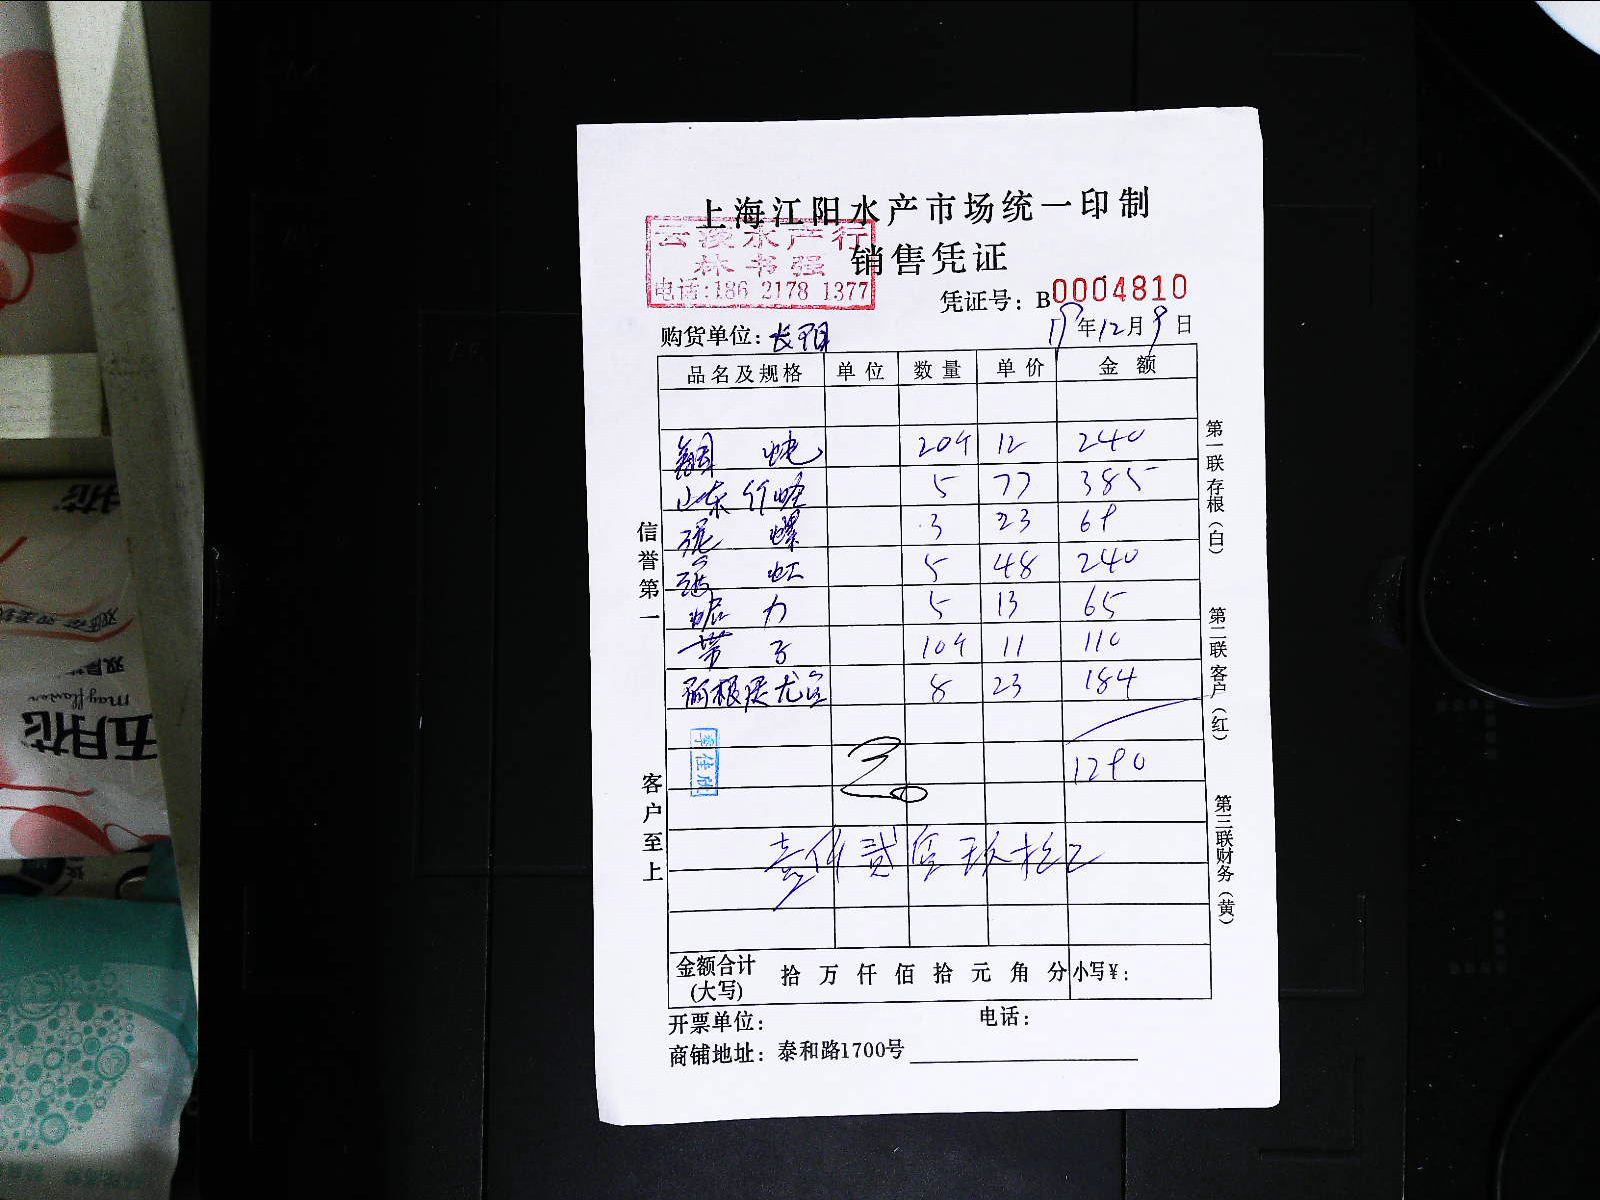 上海江阳水产市场统一印制
云波水产行
林书强
电话:186 2178 1377
销售凭证
凭证号: B0004810
购货单位: 长阳
19年12月9日
品名及规格 单位 数量 单价 金额
20 12 240
山东竹蛏 5 77 385
泥螺 3 23 69
5 48 240
5 13 65
带子 10 11 110
8 23 184
1290
壹仟贰佰玖拾元
金额合计(大写) 拾 万 仟 佰 拾 元 角 分 小写¥:
开票单位: 电话:
商铺地址: 泰和路1700号
信誉第一
客户至上
第一联存根(白)
第二联客户(红)
第三联财务(黄)
五月花
mayflower